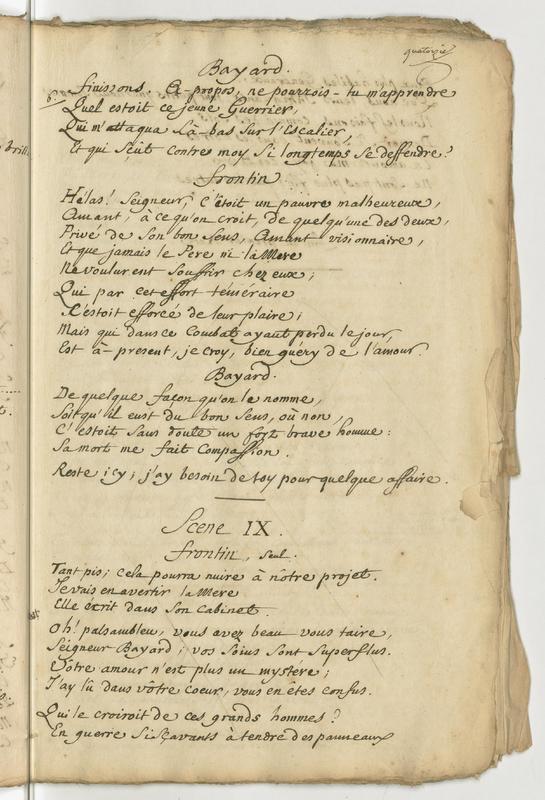 quatorzie
Bayard.
finissons. A-propos, ne pourrois-tu m'apprendre
6. Quel estoit ce jeune Guerrier,
Qui m'attaqua Là-bas sur l'Escalier,
Et qui sçût contre moy si longtemps se deffendre?
frontin
Hélas! Seigneur, c'étoit un pauvre malheureux,
Amant, à ce qu'on croit, de quelqu'une des deux,
Privé de Son bon Sens, Amant visionnaire,
Et que jamais le Pere ni la Mere
Ne voulurent Souffrir chez eux;
Qui par cet effort téméraire
S'estoit efforcé de leur plaire;
Mais qui dans ce Combat ayant perdu le jour,
Est à-present, je croy, bien guéry de l'amour.
Bayard.
De quelque façon qu'on le nomme,
Soit qu'il eust du bon Sens, où non,
C'estoit Sans doute un fort brave homme:
Sa mort me fait Compassion.
Reste icy; j'ay besoin de toy pour quelque affaire.
Scene IX.
frontin, seul.
Tant pis; cela pourra nuire à nôtre projet.
Je vais en avertir la Mere
Elle écrit dans Son Cabinet.
Oh! palsambleu, vous avez beau vous taire,
Seigneur Bayard; vos Soins Sont Superflus.
Vôtre amour n'est plus un mystére;
J'ay lû dans vôtre coeur, vous en êtes confus.
Qui le croiroit de ces grands hommes?
En guerre Si sçavants à tendre des panneaux